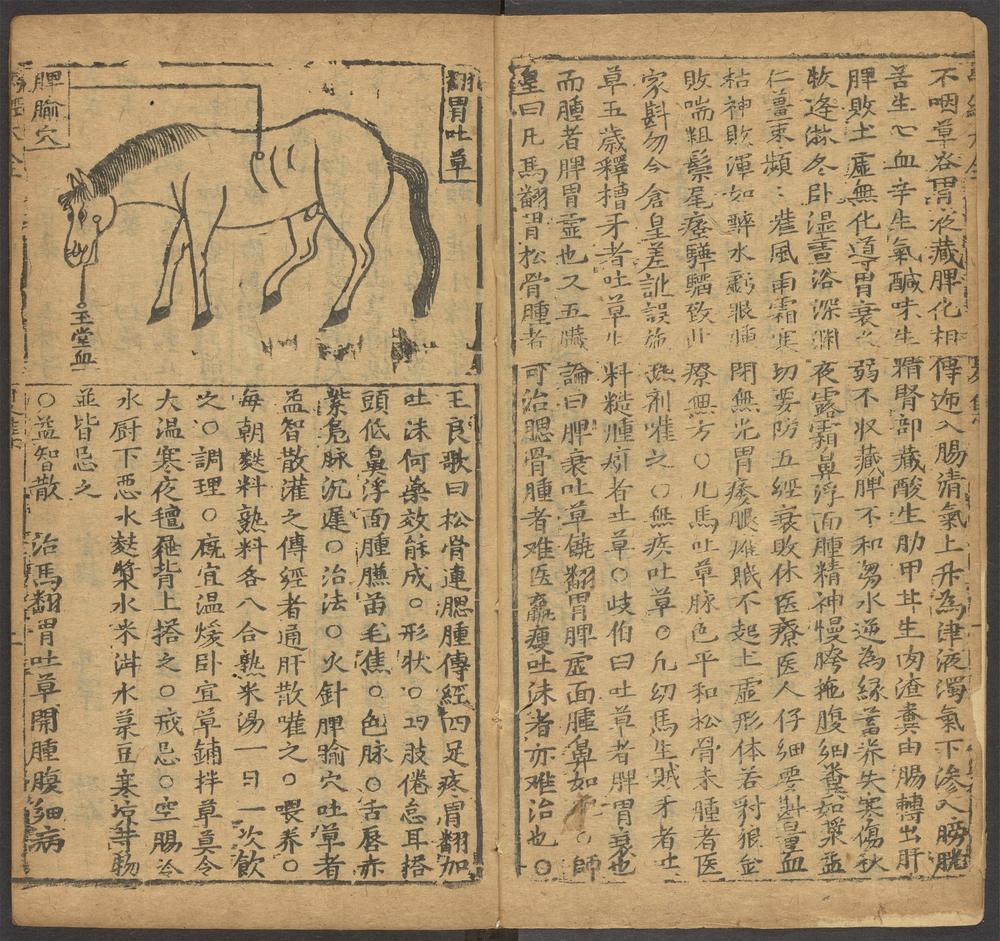 不咽草谷胃液藏脾化相傳迎入腸清氣上升為津液濁氣下滲入膀胱
苦生心血辛生氣鹹味生精腎部藏酸生肋甲甘生肉渣糞由腸轉出肝
脾敗土虛無化道胃衰火弱不収藏脾不和芻水逆為緣蓄养失寒傷秋
牧逢冬卧湿晝浴深渊夜露霜鼻浮面腫精神慢胯拖腹細糞如粟
仁薑棗頻灌風雨霜寒切要防五經衰敗休医療医人仔細要斟量血
枯神敗渾如醉水虧眼閉無光胃痿腿眠不起土虛形体若豺狼金
敗喘粗鬃尾療無方〇凡馬吐草脉色平和松骨未腫者医
家斟勿令倉皇差訛誤施藥剂嚾之〇無疾吐草〇凡幼馬生贼牙者吐
草五歲釋槽牙者吐草生料糙腫者吐草〇歧伯曰吐草者脾胃衰也
而腫者脾胃虛也又五臟論曰脾衰吐草饒翻胃脾虛面腫鼻如〇師
皇曰凡馬翻胃松骨腫者可治腮骨腫者难医羸瘦吐沫者亦难治也〇
翻胃吐草
脾腧穴
玉堂血
王良歌曰松骨連腮腫傳經四足疼胃翻加
吐沫何藥效能成〇形状〇四肢倦怠耳搭
頭低鼻浮面腫膁吊毛焦〇色脉〇舌唇赤
紫凫脉沉遲〇治法〇火針脾腧穴吐草者
益智散灌之傳經者通肝散嚾之〇喂养〇
每朝麩料熟料各八合熟米湯一日一次飲
之〇調理〇廐宜温煖卧宜草鋪拌草莫令
大温寒夜氊屜背上搭之〇戒忌〇空腸冷
水厨下恶水麩漿水米泔水菉豆寒凉等物
並皆忌之
〇益智散 治馬翻胃吐草開腫腹細病